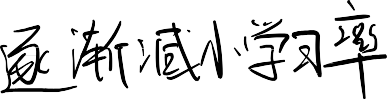 逐渐减小学习率